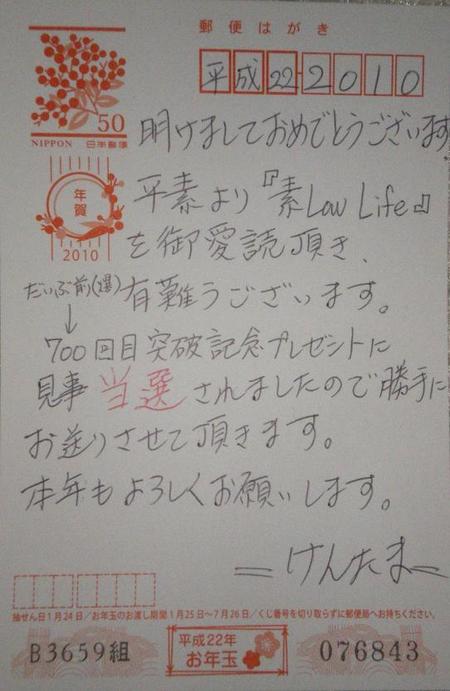 郵便はがき
平成22-2010
50
NIPPON 日本郵便
明けましておめでとうございます
年賀
2010
平素より『素Low Life』
を御愛読頂き、
だいぶ前(爆)
有難うございます。
↓
700回目突破記念プレゼントに
見事当選されましたので勝手に
お送りさせて頂きます。
本年もよろしくお願いします。
=けんたま=
抽せん日1月24日/お年玉のお渡し期間1月25日〜7月26日/くじ番号を切り取らずに郵便局へお持ちください。
B3659組
平成22年
お年玉
076843